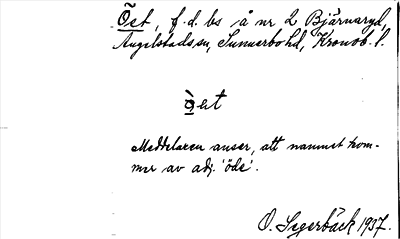 Öst, f.d. bs å nr 2 Bjärnaryd,
Angelstads sn, Sunnerbo hd, Kronob. l.
Meddelaren anser, att namnet kom-
mer av adj. 'öde'.
O. Segerbäck 1937.